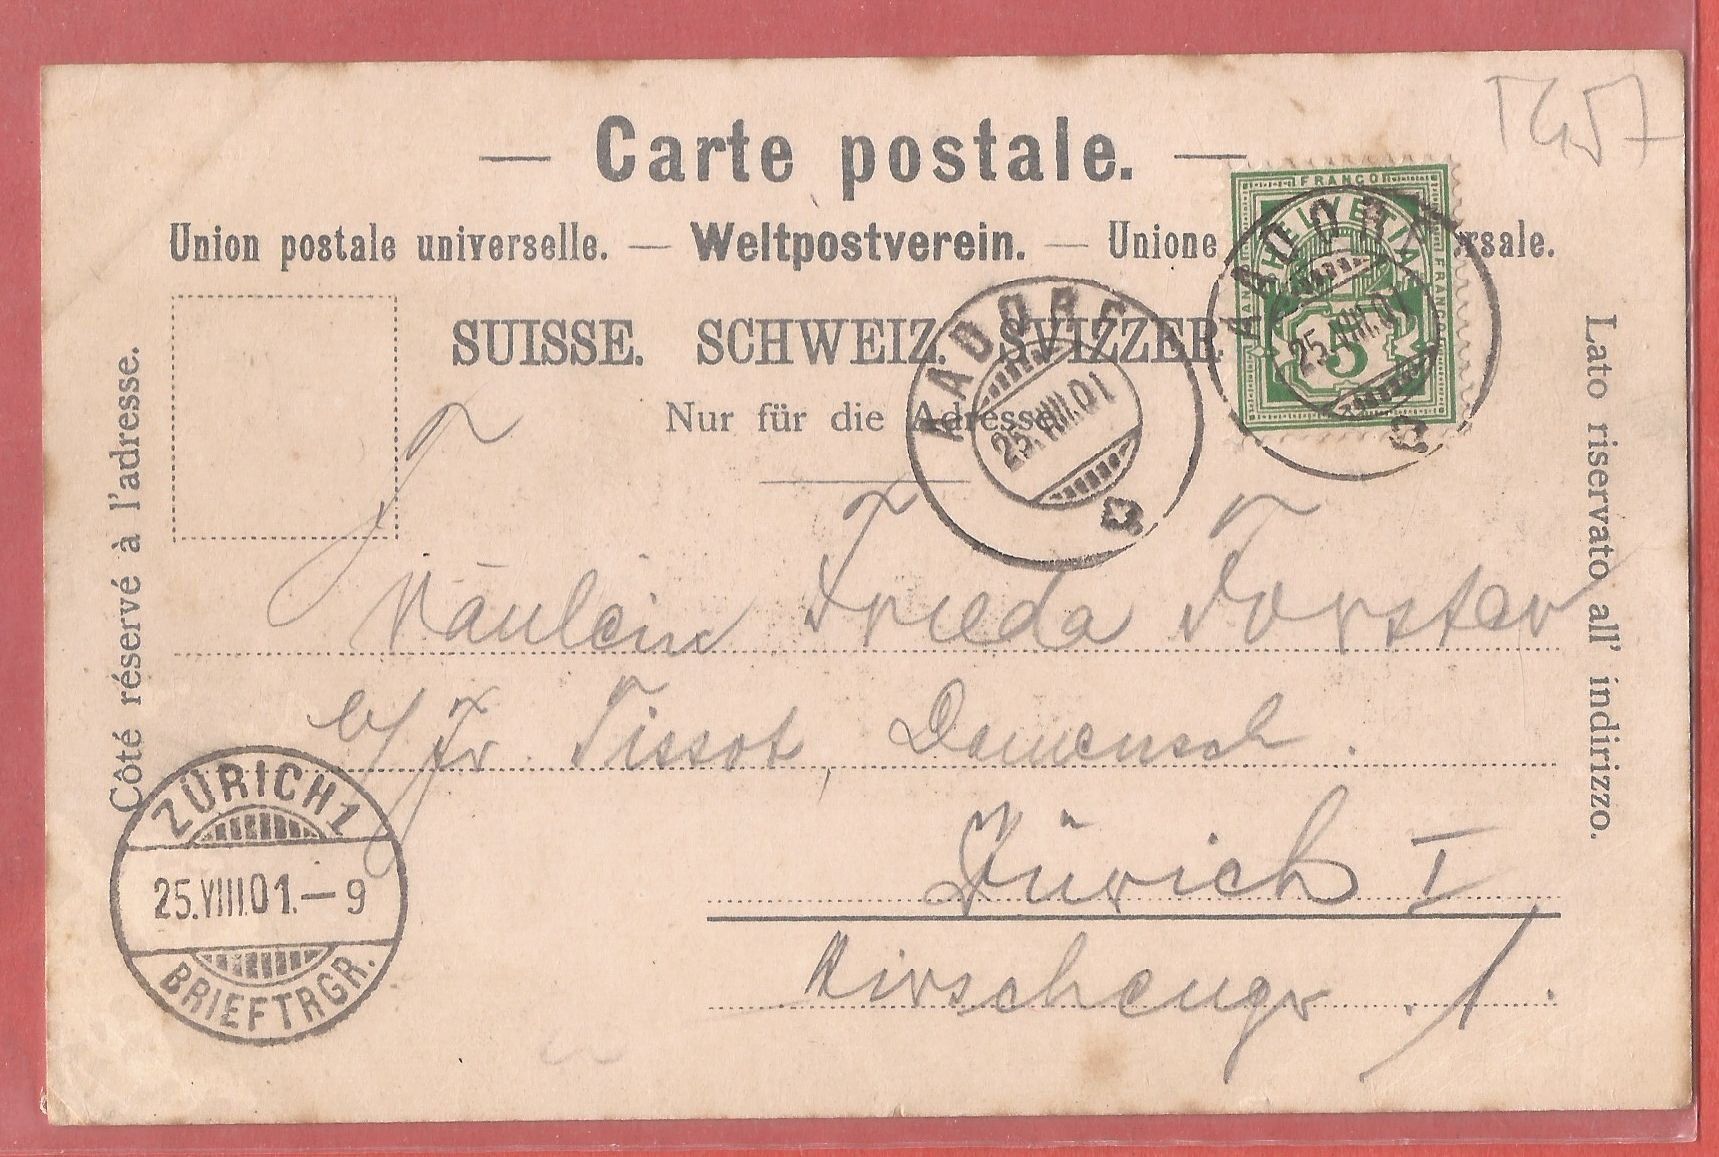 TG57
— Carte postale. —
Union postale universelle. — Weltpostverein. — Unione rsale.
SUISSE. SCHWEIZ. SVIZZER
Nur für die Adresse.
Côté réservé à l'adresse.
Lato riservato all' indirizzo.
FRANCO
HELVETIA
FRANCO
5
AADORF
25.VIII.01
AADORF
25.VIII.01
Fräulein Frieda Forster
b/ Fr Tissot
Zürich I
ZÜRICH 1
25.VIII.01.–9
BRIEFTRGR.